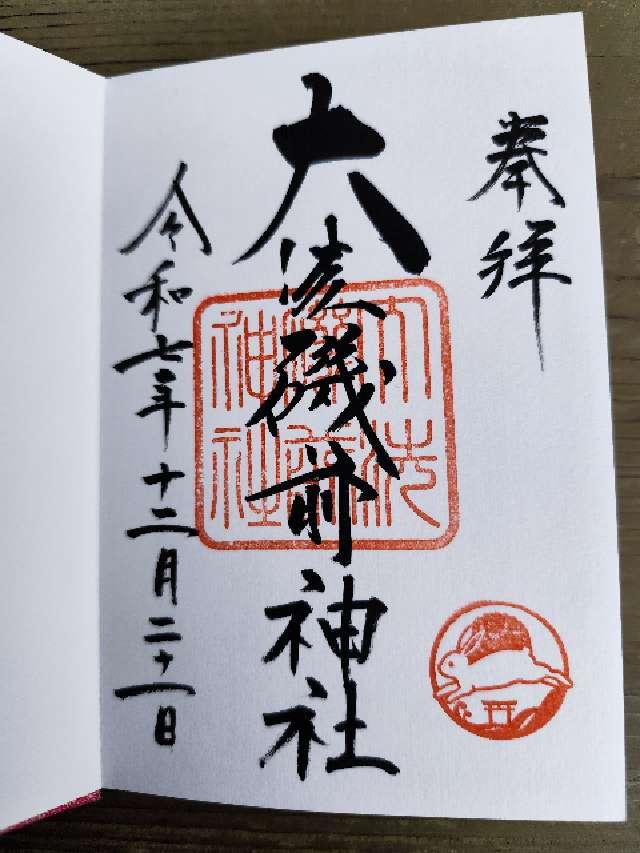 奉拝
大洗磯前神社
令和七年十二月二十一日
大洗磯前神社